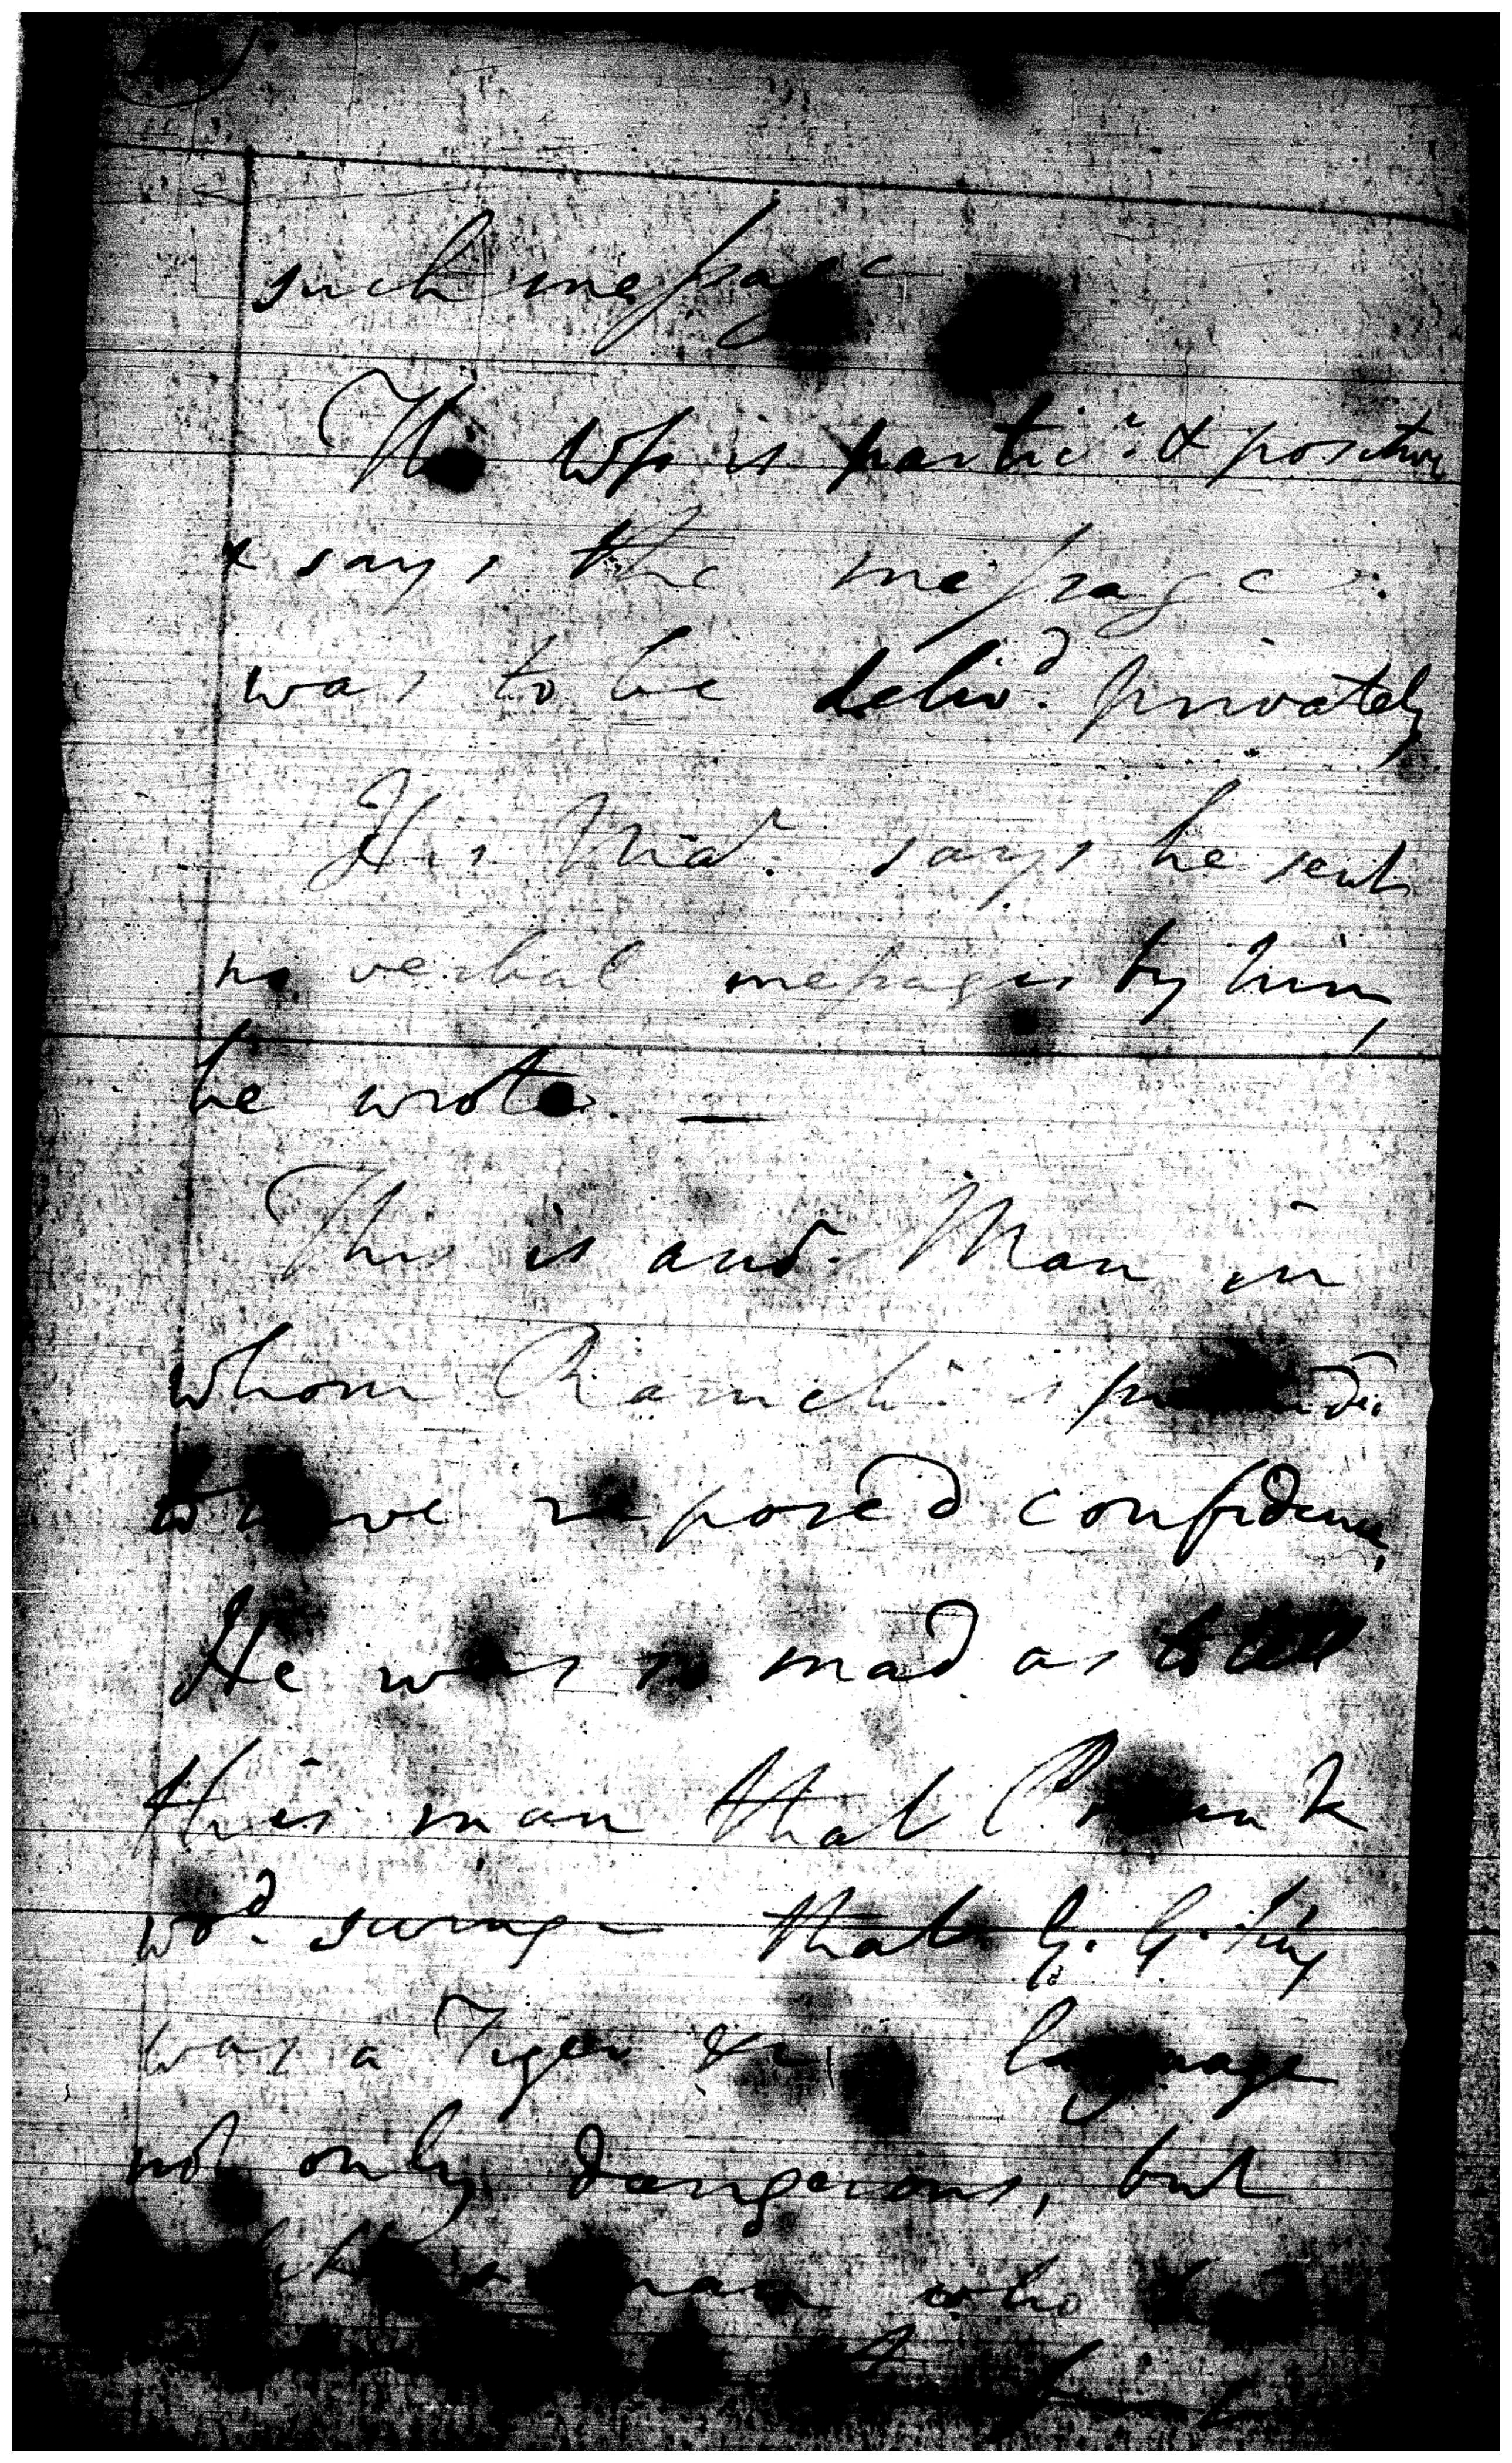 such message
The Wss is partic.r & positive
& says the message
was to be deliv.d privately,
His Mad.r says he sent
no verbal messages by him,
he wrote. —
This is and.r Man in
whom Ramch.r is
to have reposed confidence,
He was so mad as to tell
this man that
wo.d swing that G. G.
was a Tiger &c language
not only dangerous, but
man who